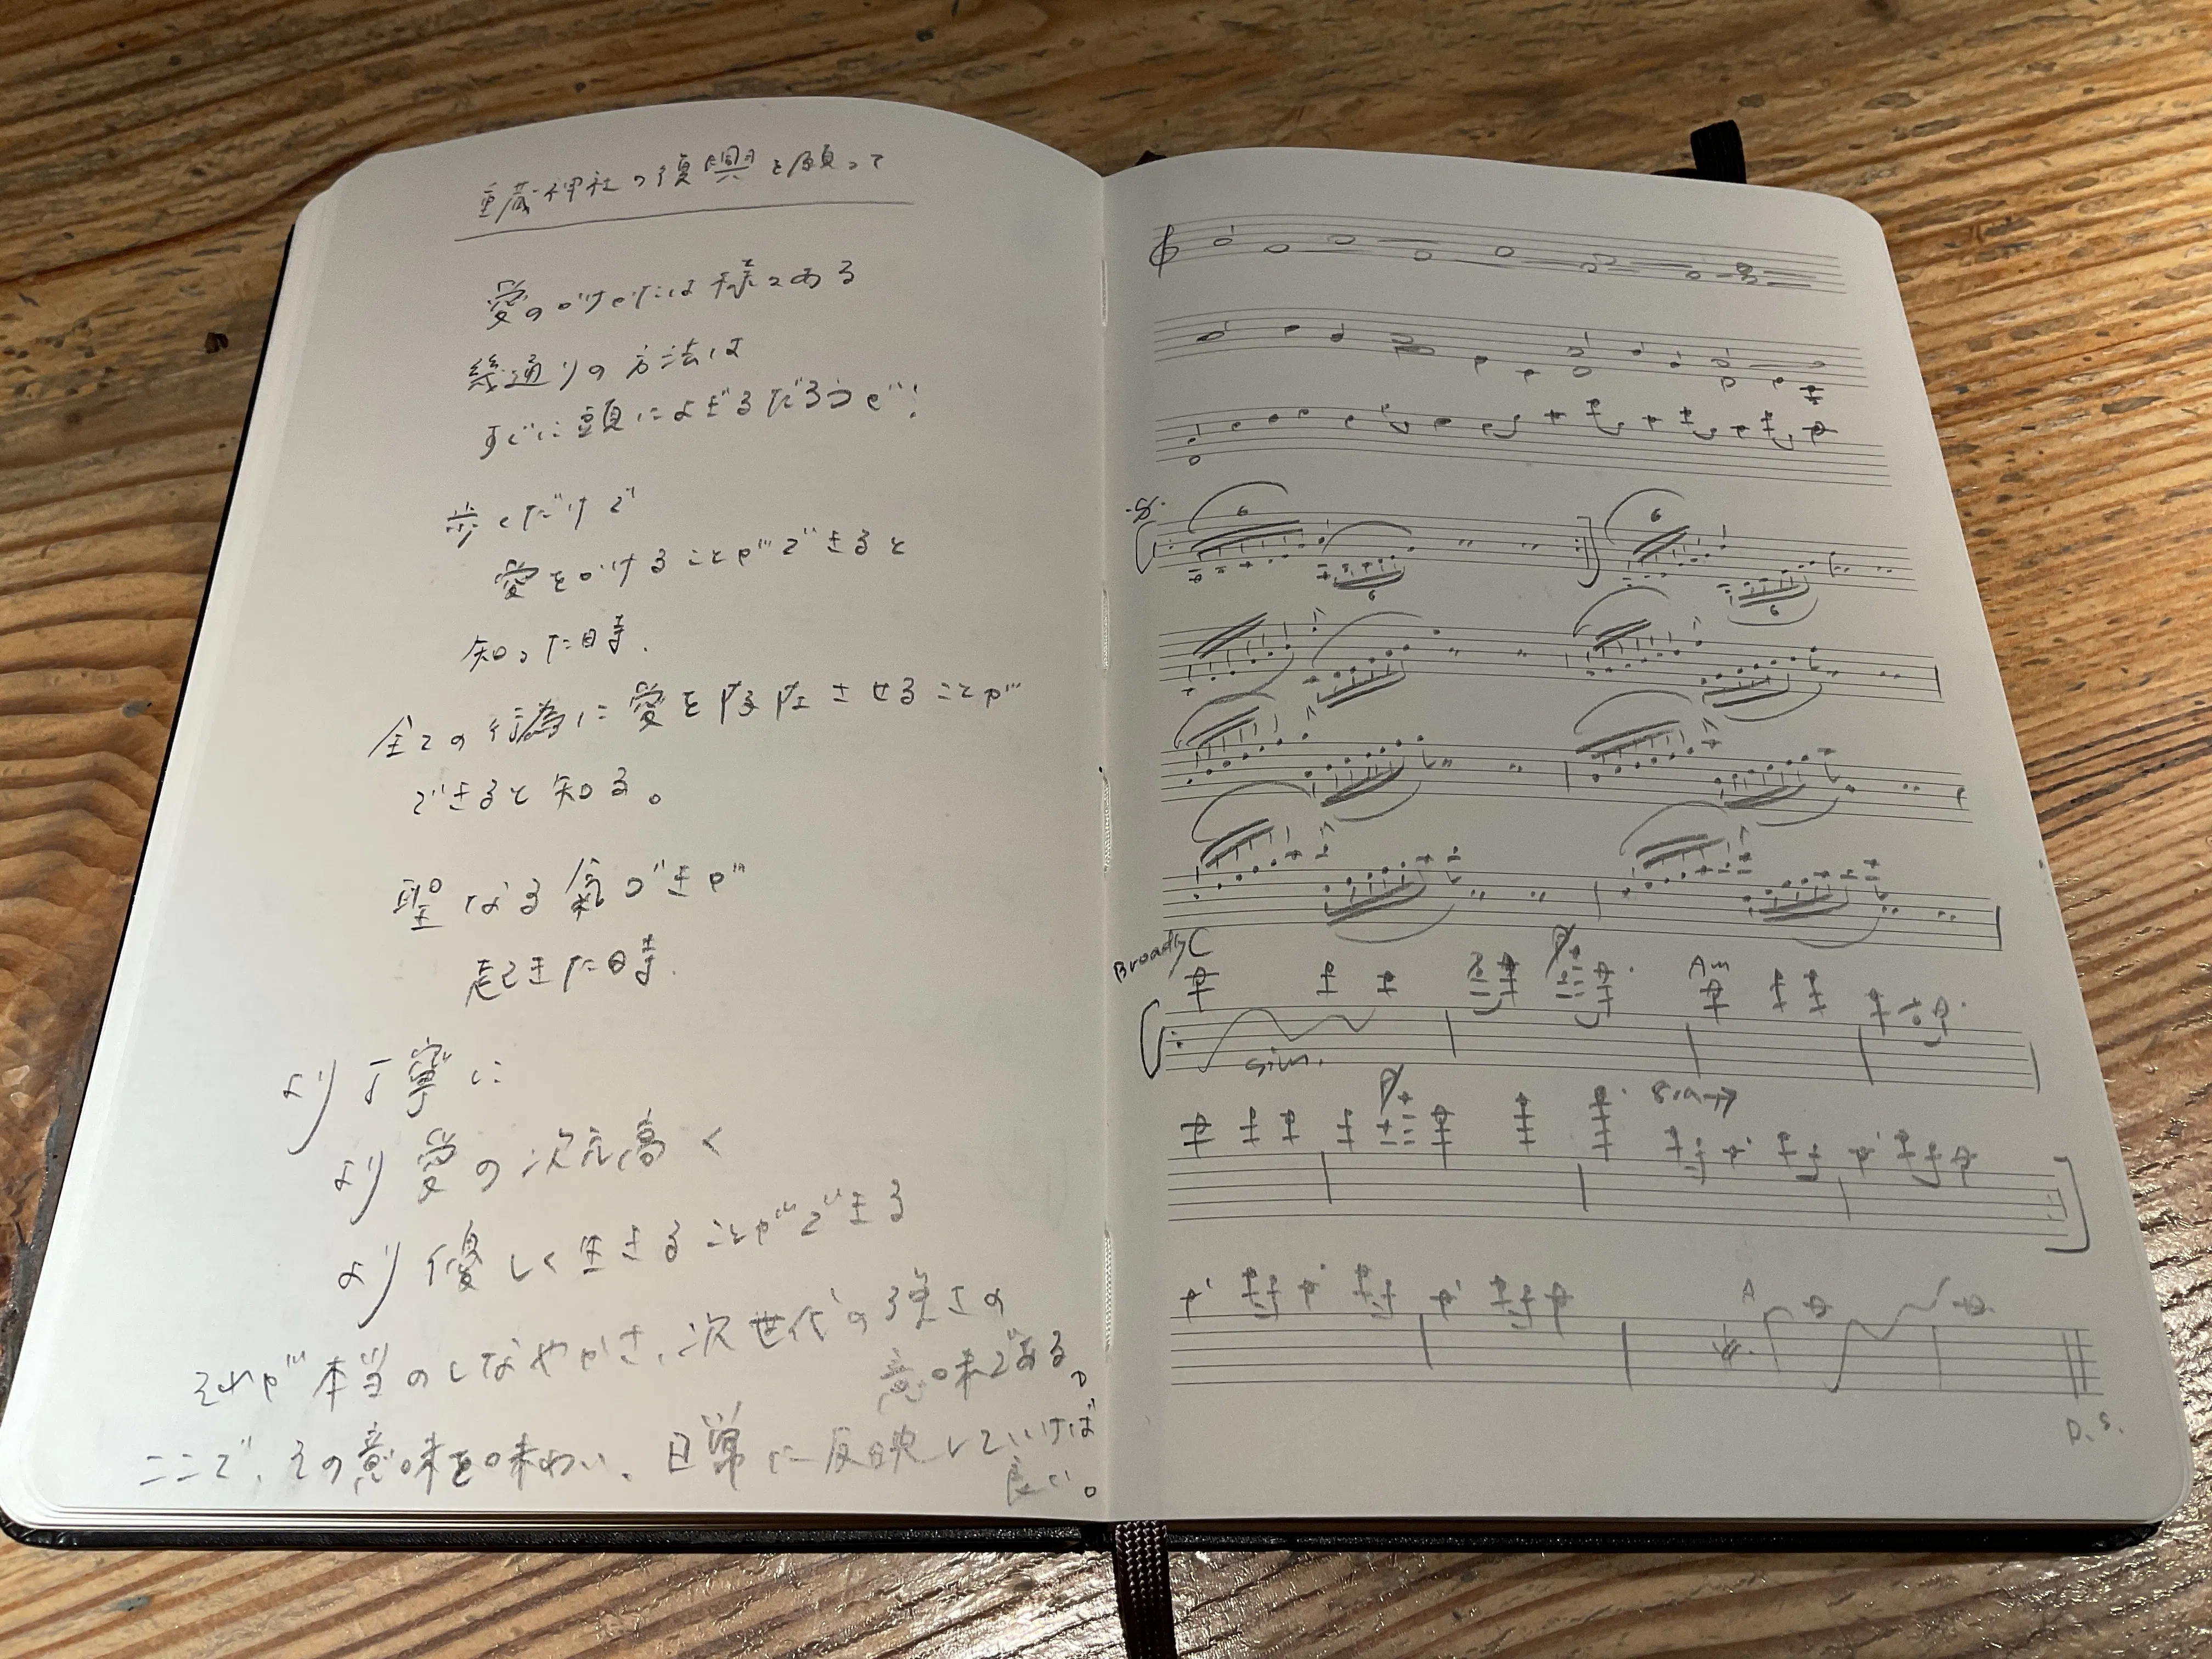 重蔵神社の復興を願って
愛のかけかたは様々ある
幾通りの方法は
すぐに頭によぎるだろうが!
歩くだけで
愛をかけることができると
知った時、
全ての行為に愛を降臨させることが
できると知る。
聖なる氣づきが
起きた時、
より丁寧に
より愛の次元高く
より優しく生きることができる
それが本当のしなやかさ、次世代の強さの
意味である。
ここで、その意味を味わい、日常に反映していけば
良い。
6 6
6 6
Broadly C Am
sim.
8va→
A
D.S.